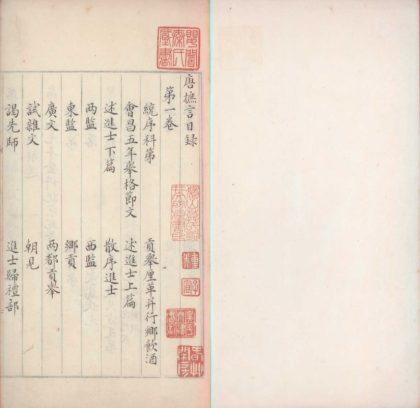 唐摭言目録
第一卷
統序科第　貢舉厘革并行鄉飲酒
會昌五年舉格節文　述進士上篇
述進士下篇　散序進士
兩監　西監
東監　鄉貢
廣文　兩都貢舉
試雜文　朝見
謁先師　進士歸禮部